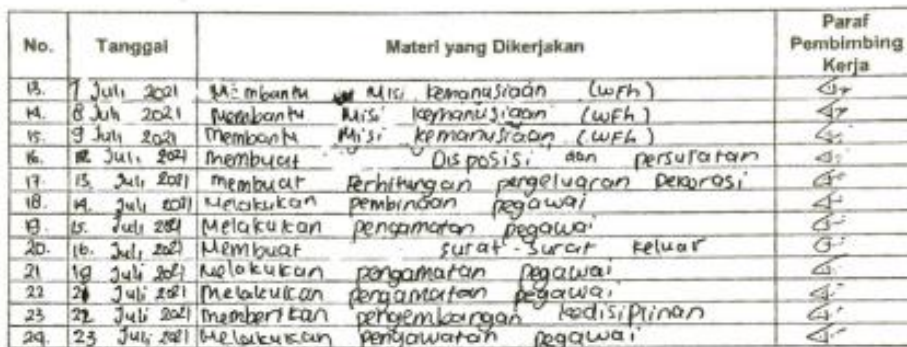 No. Tanggal Materi yang Dikerjakan Paraf Pembimbing Kerja
13. 7 Juli 2021 Membantu Misi kemanusiaan (WFh)
14. 8 Juli 2021 Membantu Misi kemanusiaan (WFh)
15. 9 Juli 2021 Membantu Misi kemanusiaan (WFh)
16. 12 Juli 2021 Membuat Disposisi dan persuratan
17. 13. Juli 2021 membuat Perhitungan pengeluaran Dekorasi
18. 14. Juli 2021 Melakukan pembinaan pegawai
19. 15. Juli 2021 Melakukan pengamatan pegawai
20. 16. Juli 2021 Membuat surat-surat keluar
21 19 Juli 2021 Melakukan pengamatan pegawai
22 21 Juli 2021 Melakukan pengamatan pegawai
23 22 Juli 2021 memberikan pengembangan kedisiplinan
24. 23 Juli 2021 Melakukan pengawatan pegawai